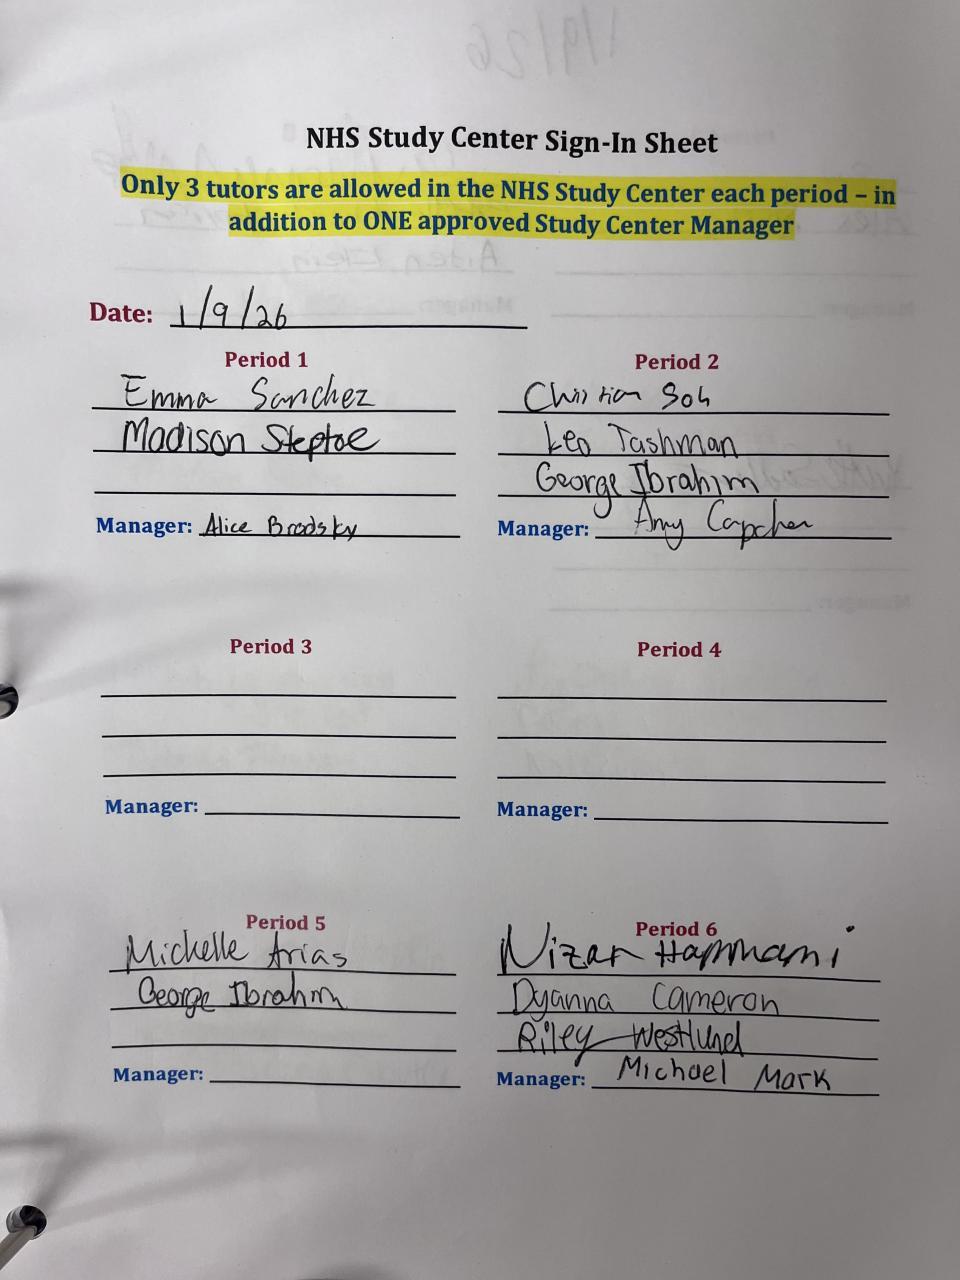 NHS Study Center Sign-In Sheet
Only 3 tutors are allowed in the NHS Study Center each period – in
addition to ONE approved Study Center Manager
Date: 1/9/26
Period 1
Emma Sanchez
Madison Steptoe
Manager: Alice Brodsky
Period 2
Christian Soh
Leo Tashman
George Ibrahim
Manager: Amy
Period 3
Manager:
Period 4
Manager:
Period 5
Michelle Arias
George Ibrahim
Manager:
Period 6
Nizar Hammami
Dyanna Cameron
Riley Westlund
Manager: Michael Mark